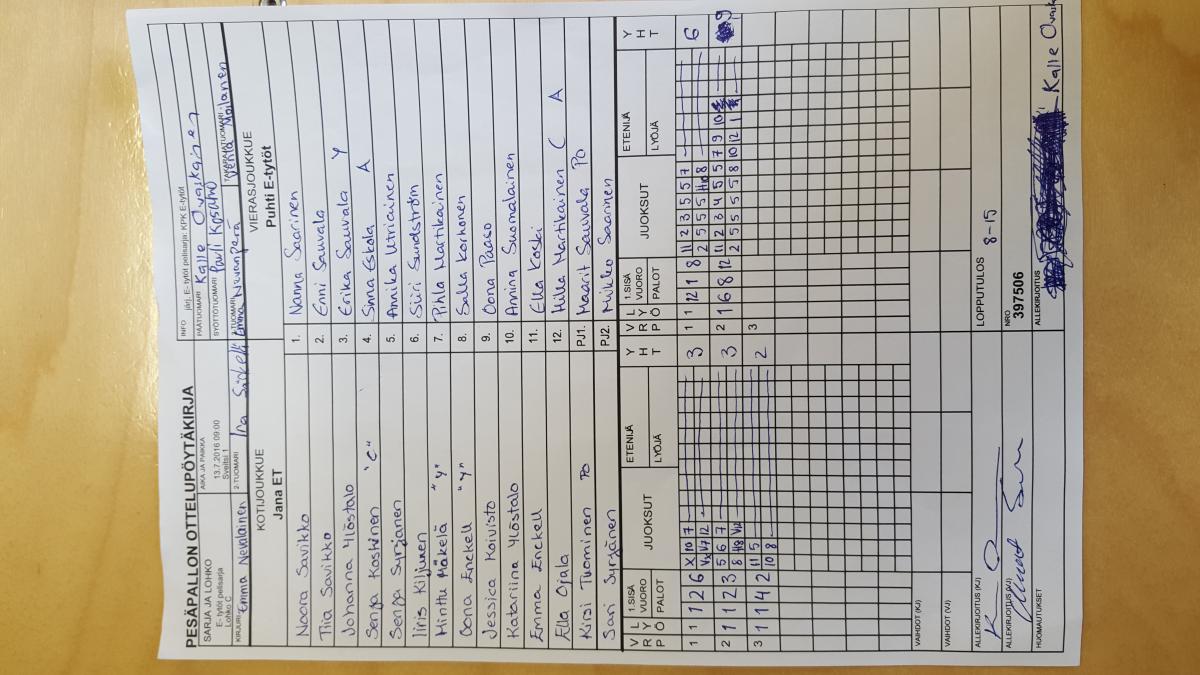 PESÄPALLON OTTELUPÖYTÄKIRJA
SARJA JA LOHKO
E- tytöt pelisarja
Lohko C
AIKA JA PAIKKA
13.7.2016 09:00
Sveitsi 1
INFO järj. E- tytöt pelisarja: KPK E-tytöt
PÄÄTUOMARI Kalle Ovaskainen
SYÖTTÖTUOMARI Pauli Kosamo
KIRJURI Emma Nevalainen
2-TUOMARI Ina
3-TUOMARI Emma Nevanperä
TAKARAJATUOMARI Venla Moilanen
KOTIJOUKKUE
Jana ET
VIERASJOUKKUE
Puhti E-tytöt
Noora Savikko 1. Nanna Saarinen
Tiia Savikko 2. Enni Sauvala
Johanna Ylöstalo 3. Erika Sauvala Y
Senja Koskinen "C" 4. Sanna Eskola A
Senja Syrjänen 5. Annika Utriainen
Iiris Kiljunen 6. Siiri Sundström
Minttu Mäkelä "Y" 7. Pihla Martikainen
Oona Enckell "Y" 8. Salla Korhonen
Jessica Koivisto 9. Oona Paaso
Katariina Ylöstalo 10. Anniina Suomalainen
Emma Enckell 11. Ella Koski
Ella Ojala 12. Hilla Martikainen C A
Kirsi Tuominen PO PJ1. Maarit Sauvala PO
Sari Syrjänen PJ2. Mikko Saarinen
V R P L Y Ö 1.SISÄ VUORO PALOT JUOKSUT ETENIJÄ LYÖJÄ Y H T V R P L Y Ö 1.SISÄ VUORO PALOT JUOKSUT ETENIJÄ LYÖJÄ Y H T
1 1 1 2 6 X 10 7 3 1 1 12 1 8 11 2 3 5 5 7 6
Vx V7 12 2 5 5 5 8
2 1 1 2 3 5 6 7 3 2 1 6 8 12 11 2 3 4 5 5 7 9 10 9
8 H8 V12 2 5 5 5 5 8 10 12 1
3 1 1 4 2 11 5 2 3
10 8
VAIHDOT (KJ)
VAIHDOT (VJ)
ALLEKIRJOITUS (KJ)
LOPPUTULOS 8-15
ALLEKIRJOITUS (VJ)
NRO
397506
HUOMAUTUKSET
ALLEKIRJOITUS Kalle